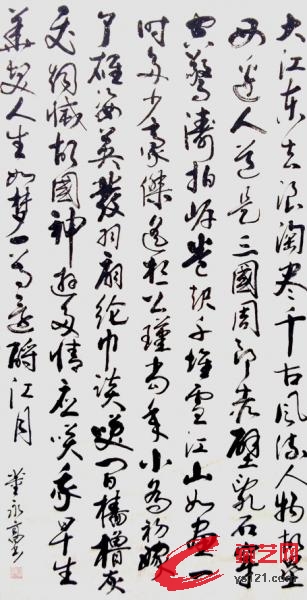 大江东去浪淘尽千古风流人物故垒
西边人道是三國周郎赤壁乱石穿
空驚涛拍岸卷起千堆雪江山如画一
时多少豪傑遥想公瑾当年小乔初嫁
了雄姿英發羽扇纶巾谈笑间檣櫓灰
飞烟灭故國神游多情应笑我早生
華髮人生如梦一尊还酹江月
董永